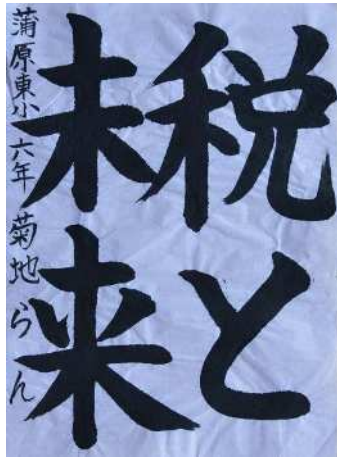 税と
未来
蒲原東小六年 菊地らん